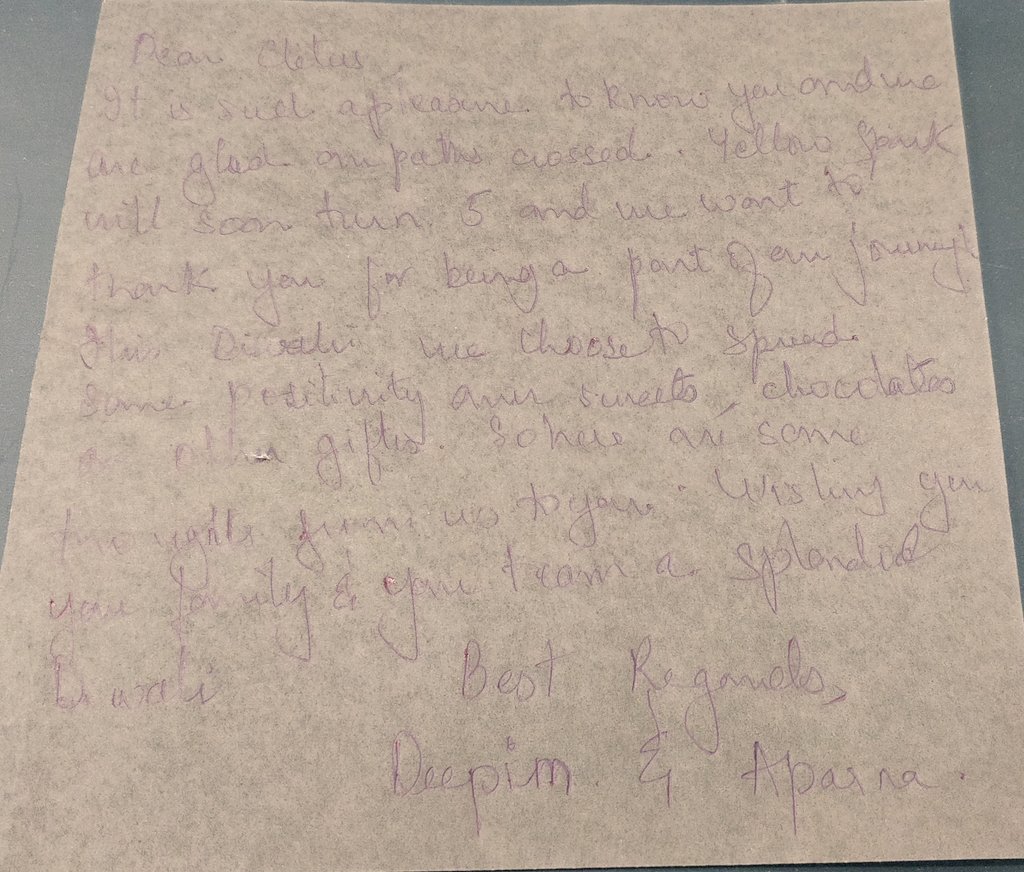 Dear Cletus,
It is such a pleasure to know you and we
are glad our paths crossed. Yellow Spark
will soon turn 5 and we want to
thank you for being a part of our journey!
This Diwali we choose to spread
some positivity over sweets, chocolates
or other gifts. So here are some
thoughts from us to you. Wishing you
your family & your team a splendid
Diwali
Best Regards,
& Aparna.